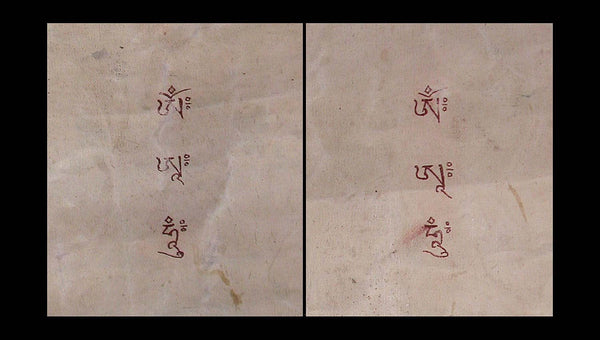 ཨོཾ༔
ཨཱ༔
ཧཱུྃ༔
ཨོཾ༔
ཨཱ༔
ཧཱུྃ༔